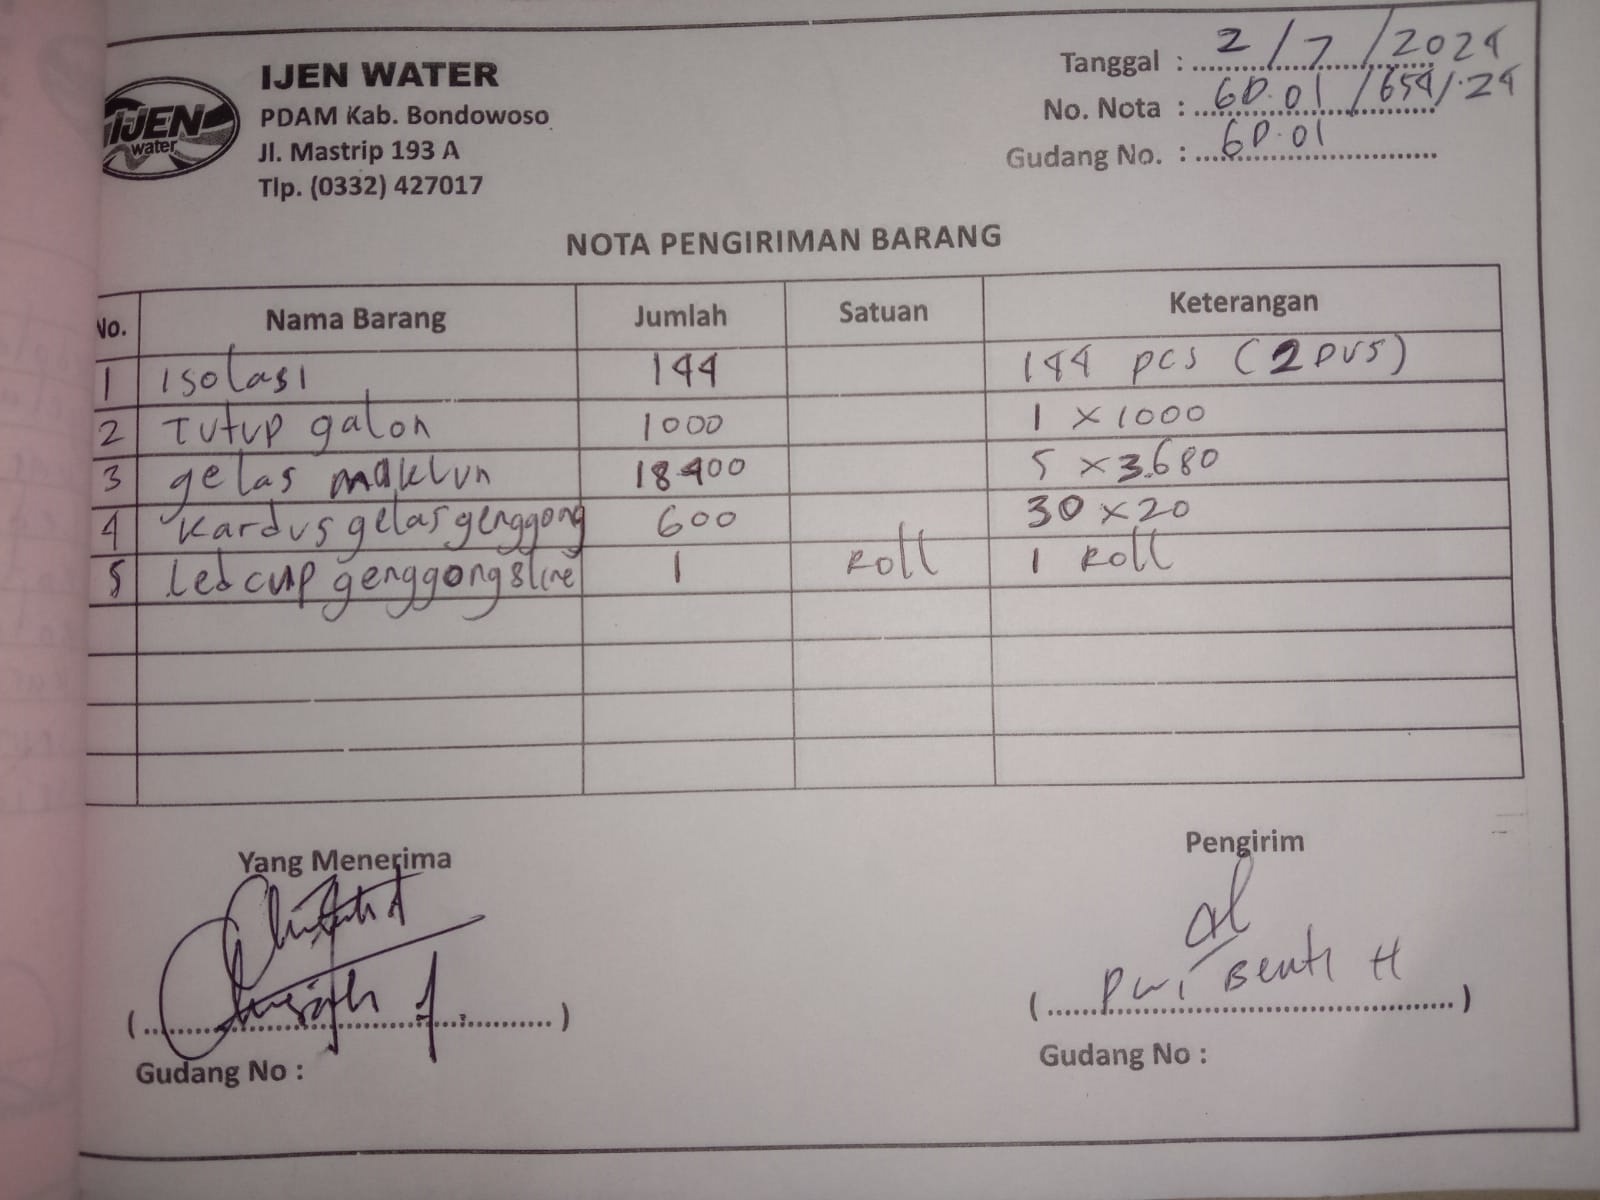 IJEN WATER
PDAM Kab. Bondowoso
Jl. Mastrip 193 A
Tlp. (0332) 427017
IJEN
water
Tanggal : 2/7/2024
No. Nota : GD.01/654/.24
Gudang No. : GD.01
NOTA PENGIRIMAN BARANG
No. Nama Barang Jumlah Satuan Keterangan
1 isolasi 144 144 pcs (2 DUS)
2 Tutup galon 1000 1 x 1000
3 gelas maklun 18400 5 x 3.680
4 Kardus gelas genggong 600 30 x 20
5 Led cup genggong 8 line 1 Roll 1 Roll
Yang Menerima
Pengirim
(.......................................)
( H )
Gudang No :
Gudang No :